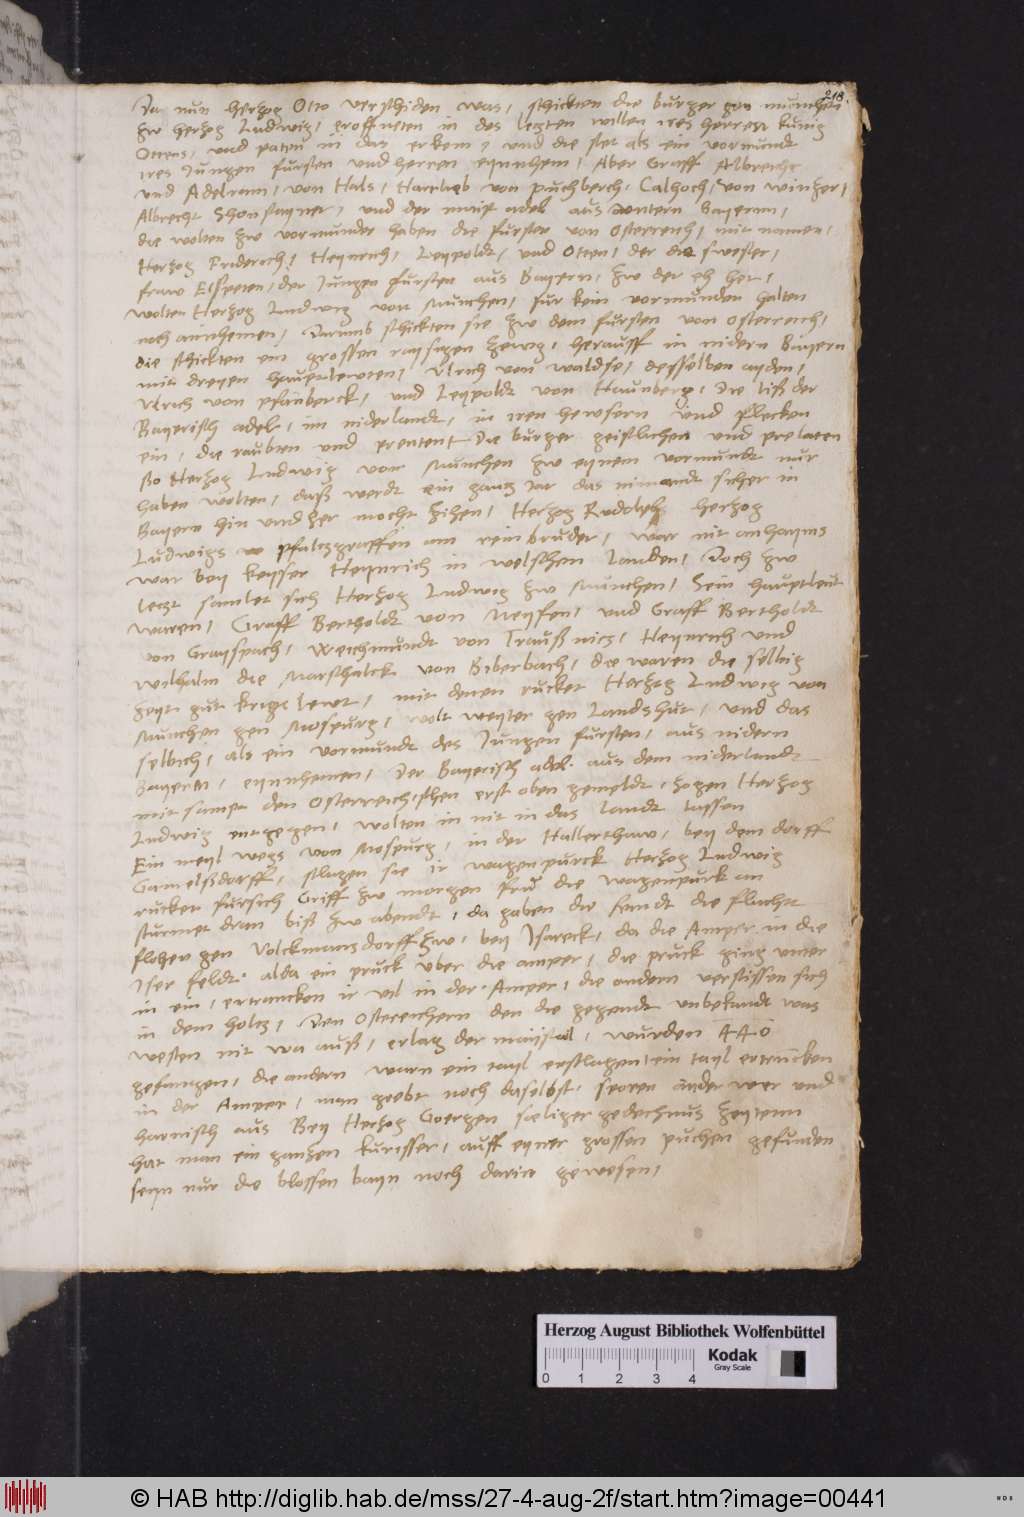 218.
Da nun herzog Otto verschiden was, schickten die burger gon munchen
zw herzog Ludwig, eroffneten in des letzten willen ires herren kunig
Ottens, und paten in das er kem, und die stet als ein vormundt
ires Jungen fursten und herren eynnhem, Aber Graff Albrecht
und Adelram, von Hals, Hartlieb von puchberch, Calhoch, von winzer,
Albrecht Thonstayner, und der maist adel aus Bayern,
die wolten zw vormunder haben die fursten von Osterreich, mit namen,
Herzog Friderich, Heynrich, Leypoldt, und Otten, der die swester,
fraw Elspeten, der Jungen fursten aus Bayern, zw der eh het,
wolten Herzog Ludwig von Munchen, fur kein vormunden halten
noch annhemen, Darumb schickten sie zw dem fursten von Osterreich,
die schickten ein grossen raysigen zewg, herauff in nidern Bayern
mit dreyen hauptlewten, Ulrich von waldse, desselben ayden,
Ulrich von pfanberck, und Leypoldt von Haunberg, Die liß der
Bayerisch adel, im niderlandt, in iren hewsern und flecken
ein, die raubten und prenten Die burger geistlichen und prelaten
so Herzog Ludwig von Munchen zw eynem vormundt nur
haben wolten, daß werdt ein gantz Jar das nimandt sicher in
Bayern hin und her mocht zihen, Herzog Rudolph herzog
Ludwigs pfaltzgraffen am rein bruder, war nit anhayms
war bey keysser Heynrich in welschen landen, Doch zw
letzt samlet sich Herzog Ludwig zw Munchen, Sein hauptleut
waren, Graff Bertholdt von Neyfen, und Graff Bertholdt
von Grayspach, Weichmundt von Traußnicz, Heynrich und
wilhalm die Marschalck von Biberbach, die waren die selbig
zeyt gut krigs lewt, mit denen rucket Herzog Ludwig von
Munchen gen Mospurg, wolt weyter gen Landshut, und das
selbich, als ein vormundt des Jungen fursten, aus nidern
Bayern, eynnhemen, Der Bayerisch adel aus dem niderlandt
mit sampt den Osterreichischen erst oben gemeldt, zogen Herzog
Ludwig entgegen, wolten in nit in das landt lassen
Ein meyl wegs von Mospurg, in der Hallerthaw, bey dem dorff
Gamelßdorff, schlugen sie ir wagenpurck Herzog Ludwig
rucket fursich Griff zw morgen fru die wagenpurk an
sturmet dran biß zw abendt, da gaben die feindt die flucht
flohen gen Volckmanzdorff zw, bey Isareck, da die Amper in die
Iser feldt, alda ein pruck uber die amper, die pruck ging unter
in ein, ertruncken ir vil in der Amper, die andern verstissen sich
in dem holtz, Den Osterreichern den die gegendt unbekandt was
westen nit wa auß, erlag der maysttail, wurden 440
gefangen, die andern warn ein tayl erschlagen ein tayl ertruncken
in der Amper, man grebt noch daselbst, sporen ander wer und
harnisch aus Bey Herzog Goergen säliger gedechnus zeytenn
hat man ein ganzen kurisser, auff eyner grossen puchen gefunden
seyn nur die blossen bayn noch darin gewesen,
Herzog August Bibliothek Wolfenbüttel
Kodak
Gray Scale
0 1 2 3 4
© HAB http://diglib.hab.de/mss/27-4-aug-2f/start.htm?image=00441